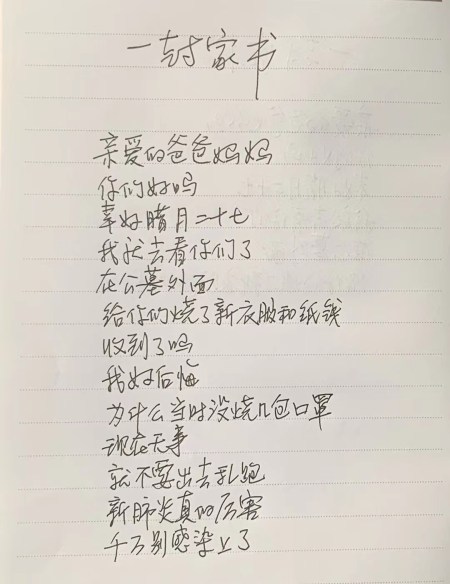 一封家书
亲爱的爸爸妈妈
你们好吗
幸好腊月二十七
我就去看你们了
在公墓外面
给你们烧了新衣服和纸钱
收到了吗
我好后悔
为什么当时没烧几包口罩
现在无事
就不要出去乱跑
新肺炎真的厉害
千万别感染上了